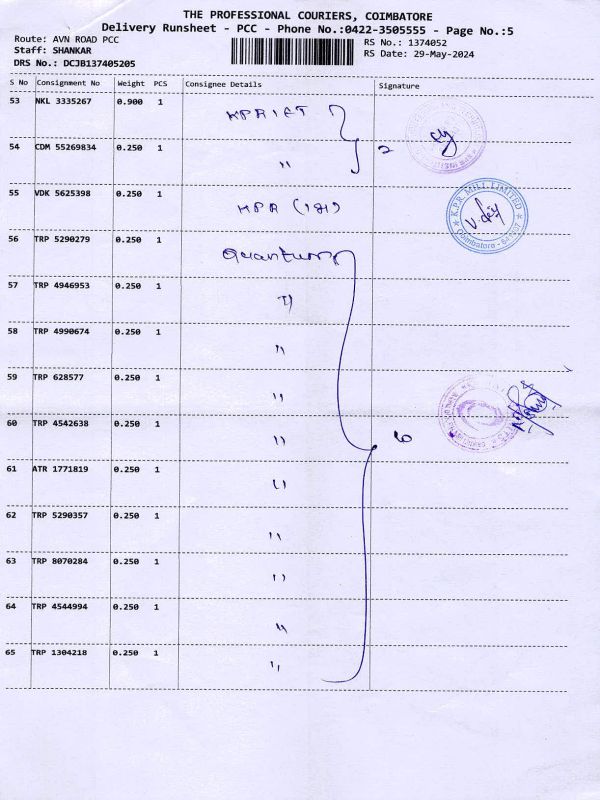 THE PROFESSIONAL COURIERS, COIMBATORE
Delivery Runsheet - PCC - Phone No.:0422-3505555 - Page No.:5
Route: AVN ROAD PCC
Staff: SHANKAR
DRS No.: DCJB137405205
RS No.: 1374052
RS Date: 29-May-2024
S No Consignment No Weight PCS Consignee Details Signature
53 NKL 3335267 0.900 1 KPRIET
54 CDM 55269834 0.250 1 " 2
55 VDK 5625398 0.250 1 KPR
K.P.R. MILL LIMITED
Coimbatore
56 TRP 5290279 0.250 1 Quantum
57 TRP 4946953 0.250 1 "
58 TRP 4990674 0.250 1 "
59 TRP 628577 0.250 1 "
60 TRP 4542638 0.250 1 " 10
61 ATR 1771819 0.250 1 "
62 TRP 5290357 0.250 1 "
63 TRP 8070284 0.250 1 "
64 TRP 4544994 0.250 1 "
65 TRP 1304218 0.250 1 "